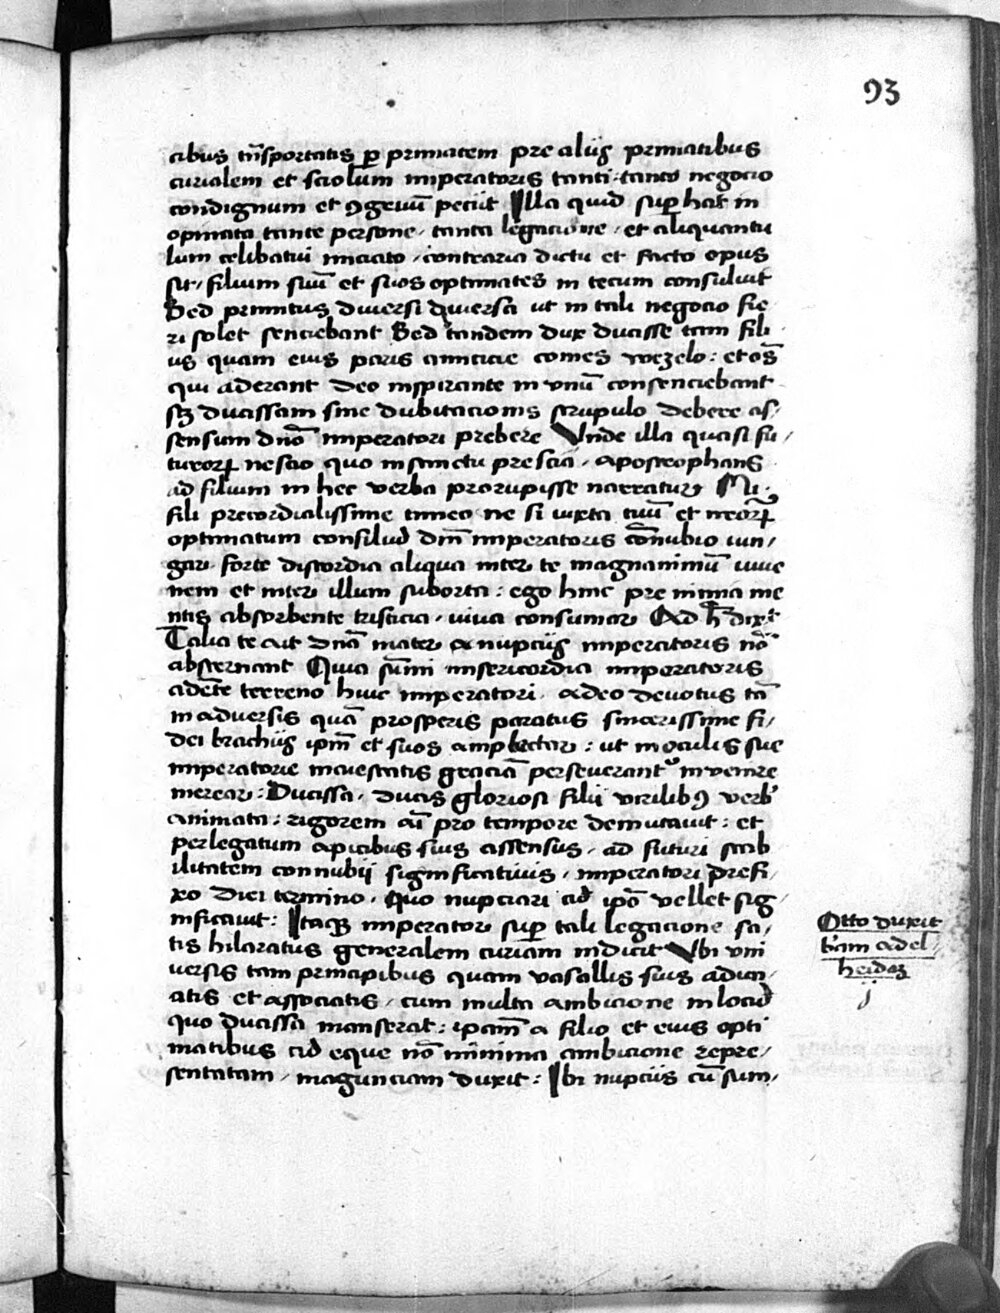 93
cibus tn̄sportatis ꝑ primatem pre aliis primatibus
curialem et sciolum imperatoris tanti tanto negocio
condignum et ꝯgruū peciit Illa quid suꝑ hac in
opinata tante persone, tanta legacione, et aliquantu
lum celibatui iniciato, contraria dictu et facto opus
sit, filium suū et suos optimates in tecum consuluit
Sed primitus diuersi diuersa ut in tali negocio fie
ri solet senciebant Sed tandem dux ducisse tam fili
us quam eius paris amicicie comes wezelo: et oēs
qui aderant deo inspirante in vnū consenciebant
sꝫ ducissam sine dubitacionis scrupulo debere as,
sensum dn̄o imperatori prebere Unde illa quasi fu,
turorꝝ nescio quo instinctu prescia, apostrophans
ad filium in hec verba prorupisse narratur Mi
fili precordialissime timeo ne si iuxta tuū et nr̄orꝝ
optimatum consiliud dn̄i imperatoris cōnubio iun,
gar, forte discordia aliqua inter te magnanimū iuue
nem et inter illum suborta: ego hinc pre nimia me
ntis absorbente tristicia, viua consumar Ad h̄ dixit
Talia te ait dn̄a mater a nupciis imperatoris nō
absternant Quia sūmi misericordia imperatoris
adēte terreno huic imperatori, adeo deuotus tā
in aduersis quā prosperis paratus sincerissime fi,
dei brachiis ipm̄ et suos amplectar: ut in oculis sue
imperatorie maiestatis graciā perseuerant inuenire
merear: Ducissa, ducis gloriosi filii virilibꝯ verb
animata: rigorem aī pro tempore demutauit: et
per legatum apicibus suis assensus, ad futuri stab
ilitatem connubii significatiuis, imperatori prefi,
xo diei termino, Quo nupciari ad ipō vellet sig,
nificauit: Itaqꝫ imperator suꝑ tali legacione sa,
tis hilaratus generalem curiam indicit Ubi vni
uersis tam principibus quam vasallis suis adun,
atis et associatis, cum multa ambicione in locū
quo ducissa manserat: ipam̄ a filio et eius opti
matibus cid eque nō minima ambicione repre,
sentatam, magunciam duxit: Ibi nupciis cū sum,
Otto duxit
adel
heidaꝫ
j